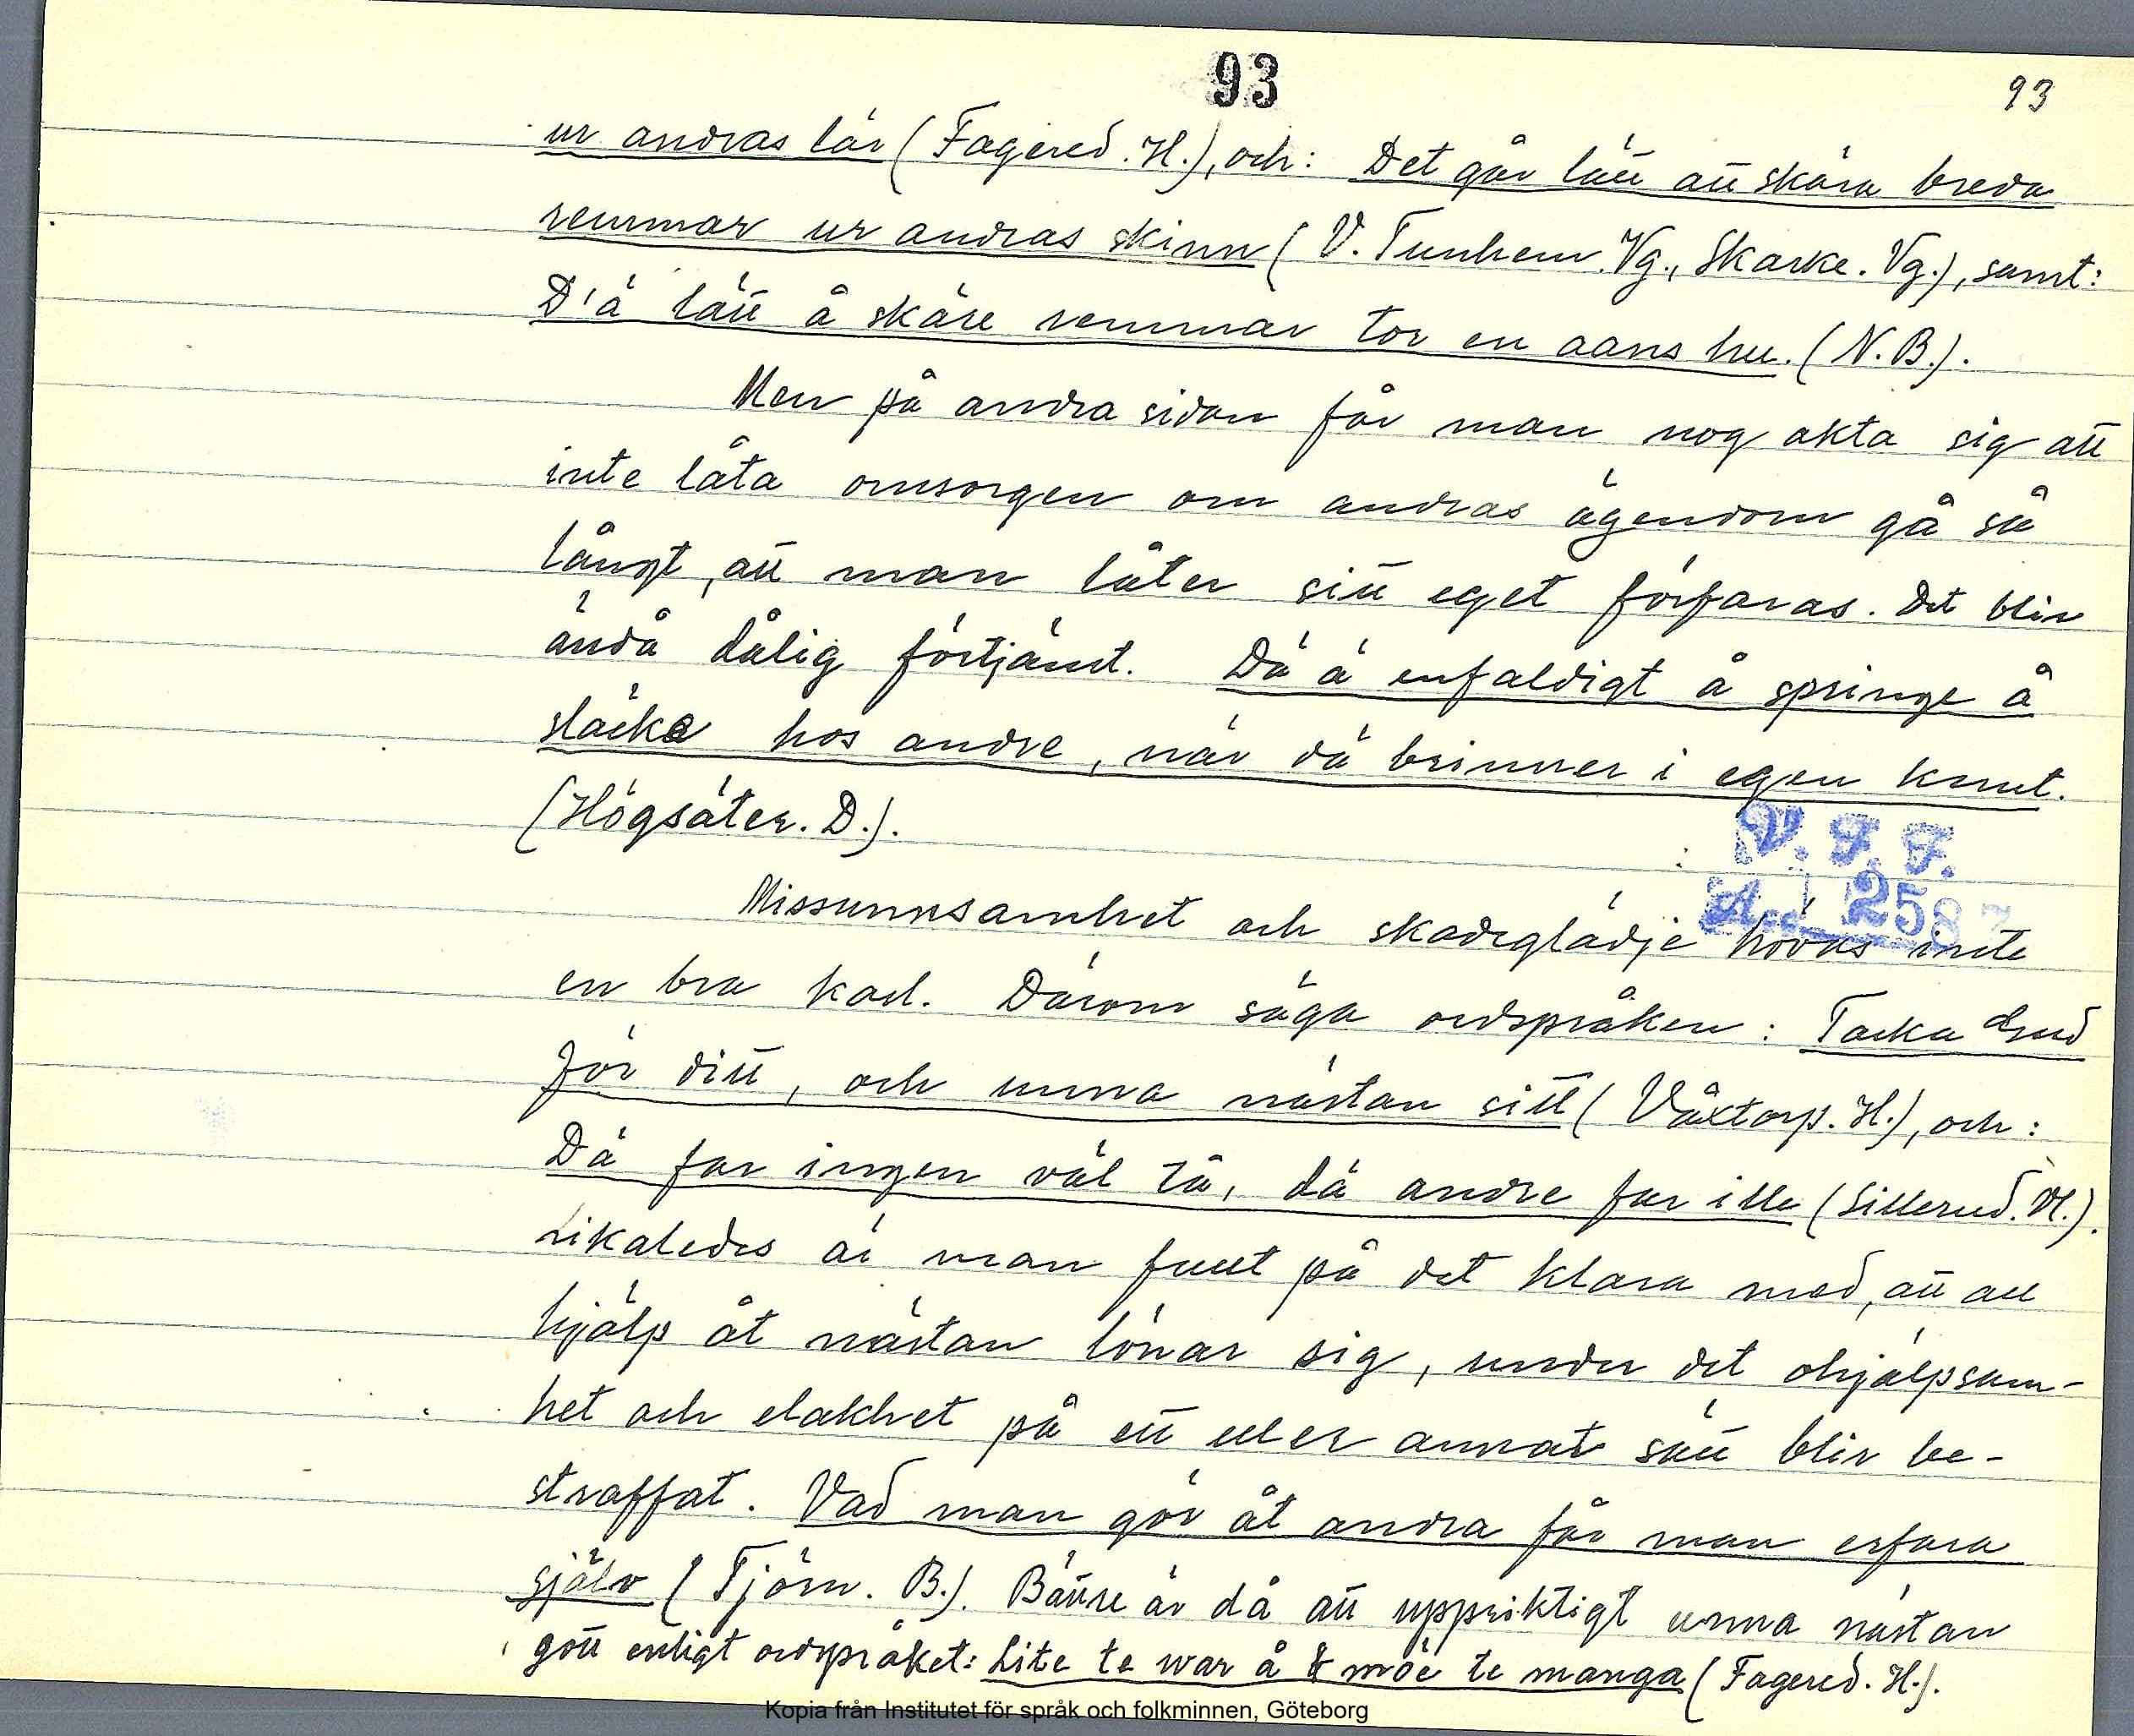 93
93
ur andras lär (Fagered. H.), och: Det går lätt att skära breda
remmar ur andras skinn (V. Tunhem. Vg., Skarke. Vg.), samt:
D'ä lätt å skäre remmar tor en aans hu. (N. B.).
Men på andra sidan får man nog akta sig att
inte låta omsorgen om andras ägendom gå så
långt, att man låter sitt eget förfaras. Det blir
ändå dålig förtjänst. Dä ä enfaldigt å springe å
släcka hos andre, när dä brinner i egen knut.
(Högsäter. D.).
V. F. F.
Acc. 2587
Missunnsamhet och skadeglädje höves inte
en bra karl. Därom säga ordspråken: Tacka Gud
för ditt, och unna nästan sitt (Våxtorp. H.), och:
Dä far ingen väl tå, dä andre far ille (Sillerud. V.).
Likaledes är man fullt på det klara med, att all
hjälp åt nästan lönar sig, under det ohjälpsam-
het och elakhet på ett eller annat sätt blir be-
straffat. Vad man gör åt andra får man erfara
själv (Tjörn. B.). Bättre är då att uppriktigt unna nästan
gott enligt ordspråket: Lite te war å möe te manga (Fagered. H.).
Kopia från Institutet för språk och folkminnen, Göteborg